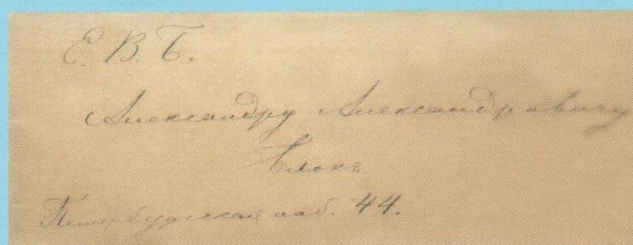 Е. В. Б.
Александру Александровичу
Блокъ
Петербургская наб. 44.